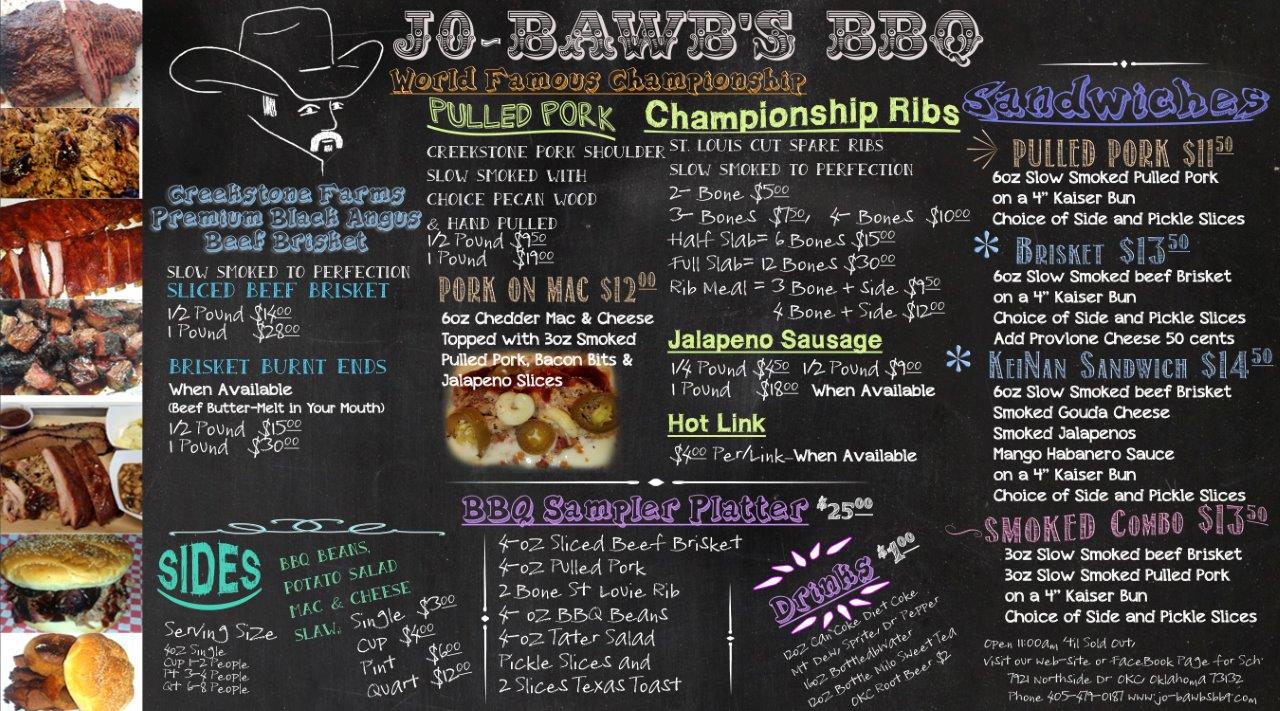 JO-BAWB'S BBQ
World Famous Championship
Creekstone Farms
Premium Black Angus
Beef Brisket
SLOW SMOKED TO PERFECTION
SLICED BEEF BRISKET
1/2 Pound $14.00
1 Pound $28.00
BRISKET BURNT ENDS
When Available
(Beef Butter-Melt in Your Mouth)
1/2 Pound $15.00
1 Pound $30.00
PULLED PORK
CREEKSTONE PORK SHOULDER
SLOW SMOKED WITH
CHOICE PECAN WOOD
& HAND PULLED
1/2 Pound $9.50
1 Pound $19.00
PORK ON MAC $12.00
6oz Chedder Mac & Cheese
Topped with 3oz Smoked
Pulled Pork, Bacon Bits &
Jalapeno Slices
Championship Ribs
ST. LOUIS CUT SPARE RIBS
SLOW SMOKED TO PERFECTION
2- Bone $5.00
3- Bones $7.50, 4- Bones $10.00
Half Slab= 6 Bones $15.00
Full Slab= 12 Bones $30.00
Rib Meal = 3 Bone + Side $9.50
4 Bone + Side $12.00
Jalapeno Sausage
1/4 Pound $4.50 1/2 Pound $9.00
1 Pound $18.00 When Available
Hot Link
$4.00 Per/Link-When Available
Sandwiches
PULLED PORK $11.50
6oz Slow Smoked Pulled Pork
on a 4" Kaiser Bun
Choice of Side and Pickle Slices
* BRISKET $13.50
6oz Slow Smoked beef Brisket
on a 4" Kaiser Bun
Choice of Side and Pickle Slices
Add Provlone Cheese 50 cents
* KEINAN SANDWICH $14.50
6oz Slow Smoked beef Brisket
Smoked Gouda Cheese
Smoked Jalapenos
Mango Habanero Sauce
on a 4" Kaiser Bun
Choice of Side and Pickle Slices
SMOKED COMBO $13.50
3oz Slow Smoked beef Brisket
3oz Slow Smoked Pulled Pork
on a 4" Kaiser Bun
Choice of Side and Pickle Slices
SIDES
BBQ BEANS,
POTATO SALAD
MAC & CHEESE
SLAW,
Single $3.00
Cup $4.00
Pint $6.00
Quart $12.00
Serving Size
4oz Single
Cup 1-2 People
Pt 3-4 People
Qt 6-8 People
BBQ Sampler Platter $25.00
4-oz Sliced Beef Brisket
4-oz Pulled Pork
2 Bone St Louie Rib
4- oz BBQ Beans
4-oz Tater Salad
Pickle Slices and
2 Slices Texas Toast
Drinks
12oz Can Coke Diet Coke
Mt Dew, Sprite, Dr Pepper
16oz BottledWater
12oz Bottle Milo Sweet Tea
OKC Root Beer $2
Open 11:00am 'til Sold Out,
Visit our web-site or FaceBook Page for Sch
7921 Northside Dr OKC, Oklahoma 73132
Phone 405-479-0187 www.jo-bawbsbbq.com